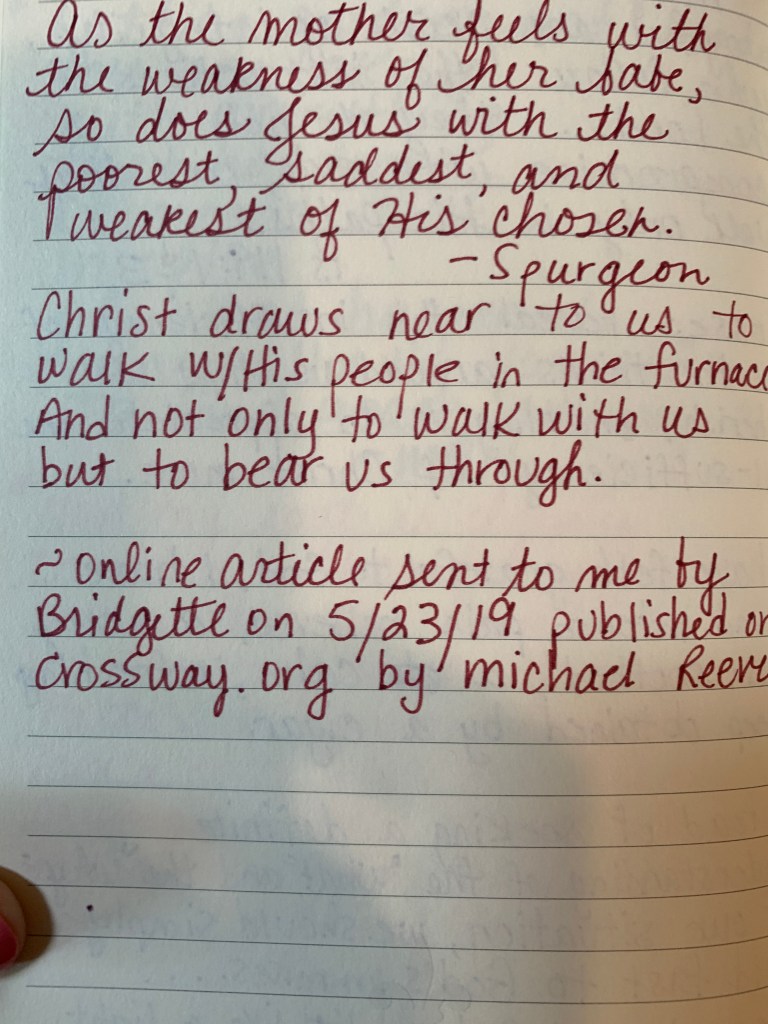 As the mother feels with
the weakness of her babe,
so does Jesus with the
poorest, saddest, and
weakest of His chosen.
- Spurgeon
Christ draws near to us to
walk w/His people in the furnac
And not only to walk with us
but to bear us through.
~ online article sent to me by
Bridgette on 5/23/19 published on
Crossway.org by michael Reeve